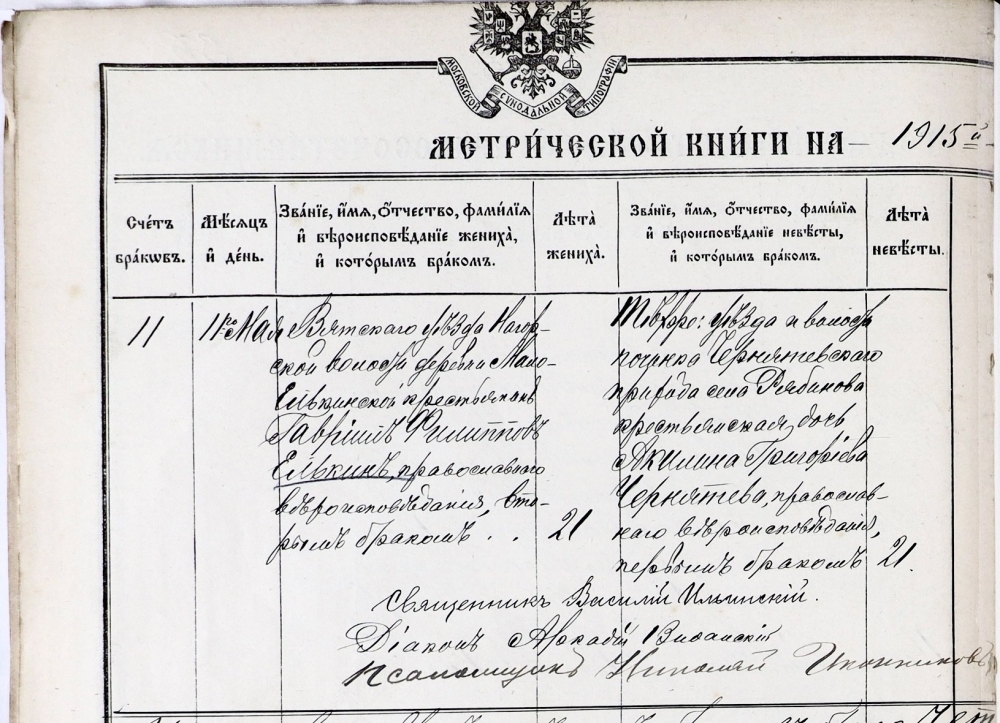 МОСКОВСКОЙ СѴНОДАЛЬНОЙ ТИПОГРАФІИ
МЕТРИ́ЧЕСКОЙ КНИ́ГИ НА 1915й
Сче́тъ бра́кѡвъ.
Мѣ́сяцъ и҆ де́нь.
Зва́нїе, и҆́мѧ, ѻ҆́тчество, фами́лїѧ
и҆ вѣроисповѣ́данїе жениха̀,
и҆ кото́рымъ бра́комъ.
Лѣта̀ жениха̀.
Зва́нїе, и҆́мѧ, ѻ҆́тчество, фами́лїѧ
и҆ вѣроисповѣ́данїе невѣ́сты,
и҆ кото́рымъ бра́комъ.
Лѣта̀ невѣ́сты.
11
11го Мая
Вятскаго уѣзда Нагор-
ской волости деревни Мало-
Елькинской крестьянинъ
Гавріилъ Филипповъ
Елькинъ, православнаго
вѣроисповѣданія, вто-
рымъ бракомъ . . 21
уѣзда и волости
починка Чернятевскаго
прихода села Рябинова
крестьянская дочь
Акилина Григоріева
Чернятева, православ-
наго вѣроисповѣданія,
первымъ бракомъ 21.
Священникъ Василій Ильинскій.
Діаконъ Аркадій
Псаломщикъ Николай Иконниковъ